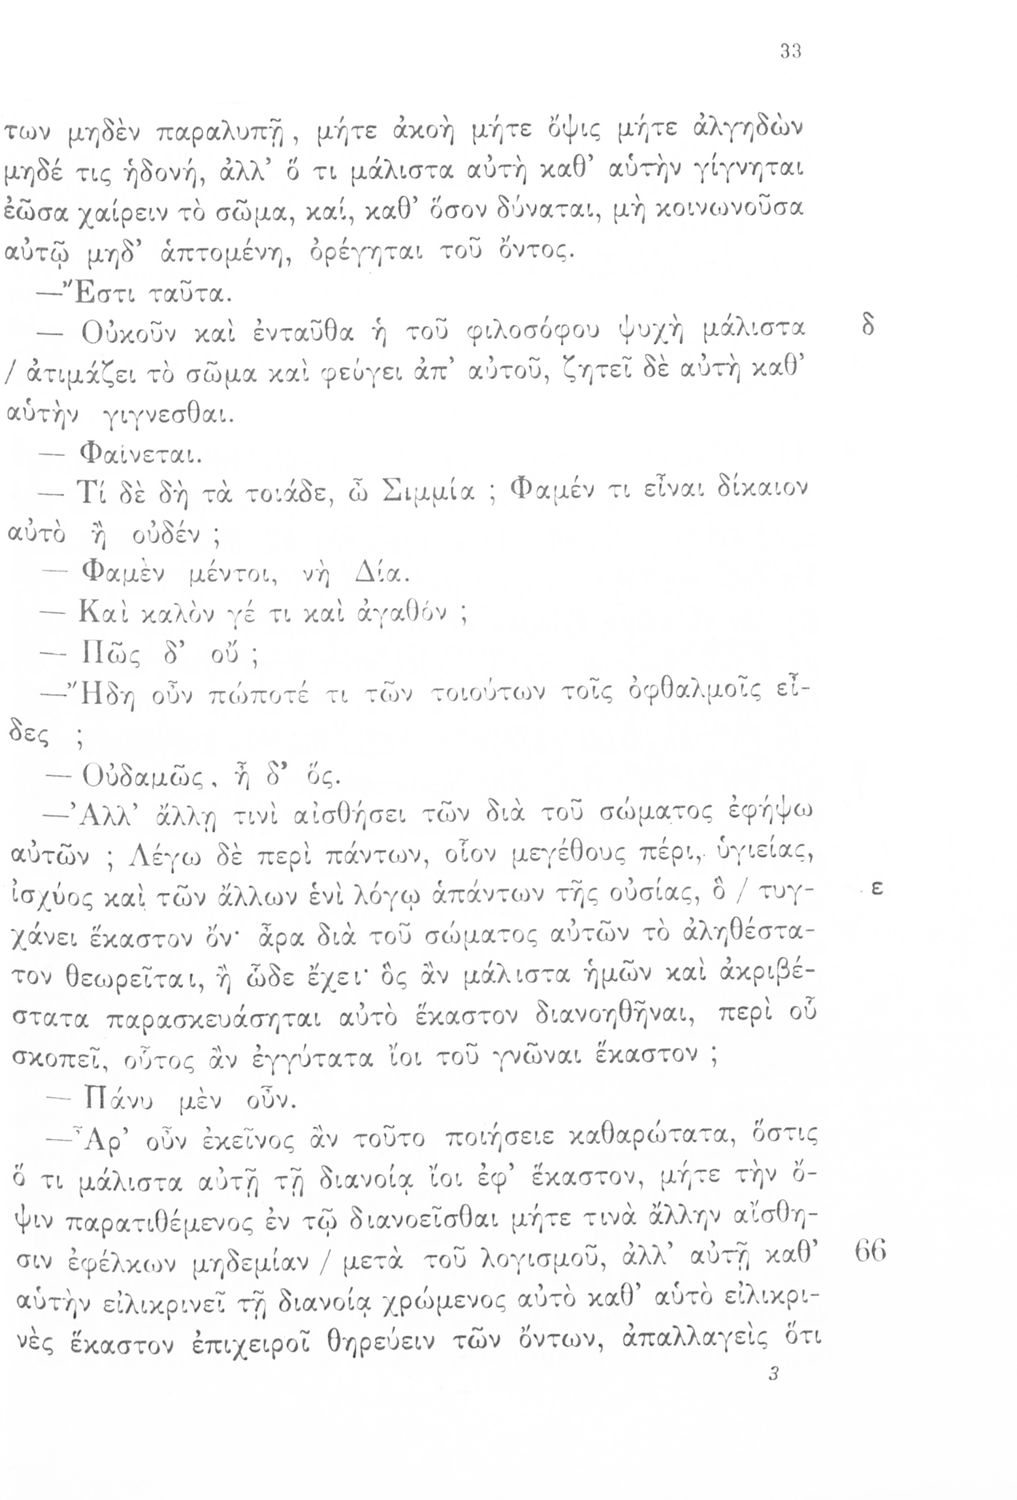 33
των μηδὲν παραλυπῇ, μήτε ἀκοὴ μήτε ὄψις μήτε ἀλγηδὼν
μηδέ τις ἡδονή, ἀλλ’ ὅ τι μάλιστα αὐτὴ καθ’ αὑτὴν γίγνηται
ἐῶσα χαίρειν τὸ σῶμα, καί, καθ’ ὅσον δύναται, μὴ κοινωνοῦσα
αὐτῷ μηδ’ ἁπτομένη, ὀρέγηται τοῦ ὄντος.
—Ἔστι ταῦτα.
— Οὐκοῦν καὶ ἐνταῦθα ἡ τοῦ φιλοσόφου ψυχὴ μάλιστα δ
/ ἀτιμάζει τὸ σῶμα καὶ φεύγει ἀπ’ αὐτοῦ, ζητεῖ δὲ αὐτὴ καθ’
αὑτὴν γιγνεσθαι.
— Φαίνεται.
— Τί δὲ δὴ τὰ τοιάδε, ὦ Σιμμία ; Φαμέν τι εἶναι δίκαιον
αὐτὸ ἢ οὐδέν ;
— Φαμὲν μέντοι, νὴ Δία.
— Καὶ καλὸν γέ τι καὶ ἀγαθόν ;
— Πῶς δ’ οὔ ;
—Ἤδη οὖν πώποτέ τι τῶν τοιούτων τοῖς ὀφθαλμοῖς εἶ-
δες ;
— Οὐδαμῶς, ἦ δ’ ὅς.
—Ἀλλ’ ἄλλῃ τινὶ αἰσθήσει τῶν διὰ τοῦ σώματος ἐφήψω
αὐτῶν ; Λέγω δὲ περὶ πάντων, οἷον μεγέθους πέρι, ὑγιείας,
ἰσχύος καὶ τῶν ἄλλων ἑνὶ λόγῳ ἁπάντων τῆς οὐσίας, ὃ / τυγ- ε
χάνει ἕκαστον ὄν· ἆρα διὰ τοῦ σώματος αὐτῶν τὸ ἀληθέστα-
τον θεωρεῖται, ἢ ὧδε ἔχει· ὃς ἂν μάλιστα ἡμῶν καὶ ἀκριβέ-
στατα παρασκευάσηται αὐτὸ ἕκαστον διανοηθῆναι, περὶ οὗ
σκοπεῖ, οὗτος ἂν ἐγγύτατα ἴοι τοῦ γνῶναι ἕκαστον ;
— Πάνυ μὲν οὖν.
—Ἆρ’ οὖν ἐκεῖνος ἂν τοῦτο ποιήσειε καθαρώτατα, ὅστις
ὅ τι μάλιστα αὐτῇ τῇ διανοίᾳ ἴοι ἐφ’ ἕκαστον, μήτε τὴν ὄ-
ψιν παρατιθέμενος ἐν τῷ διανοεῖσθαι μήτε τινὰ ἄλλην αἴσθη-
σιν ἐφέλκων μηδεμίαν / μετὰ τοῦ λογισμοῦ, ἀλλ’ αὐτῇ καθ’ 66
αὑτὴν εἰλικρινεῖ τῇ διανοίᾳ χρώμενος αὐτὸ καθ’ αὑτὸ εἰλικρι-
νὲς ἕκαστον ἐπιχειροῖ θηρεύειν τῶν ὄντων, ἀπαλλαγεὶς ὅτι
3